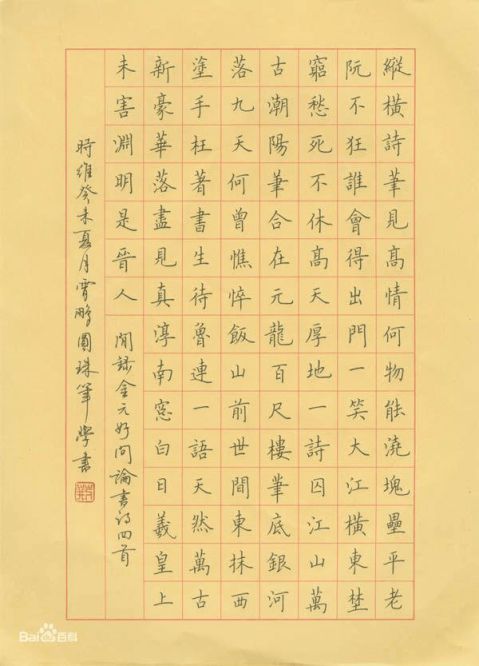 縱橫詩筆見高情何物能澆塊壘平老
阮不狂誰會得出門一笑大江橫東埜
窮愁死不休高天厚地一詩囚江山萬
古潮陽筆合在元龍百尺樓筆底銀河
落九天何曾憔悴飯山前世間東抹西
塗手枉著書生待魯連一語天然萬古
新豪華落盡見真淳南窓白日羲皇上
未害淵明是晉人 閒錄金元好問論書詩四首
時維癸未夏月霄鵬圓珠筆學書
Bai百科